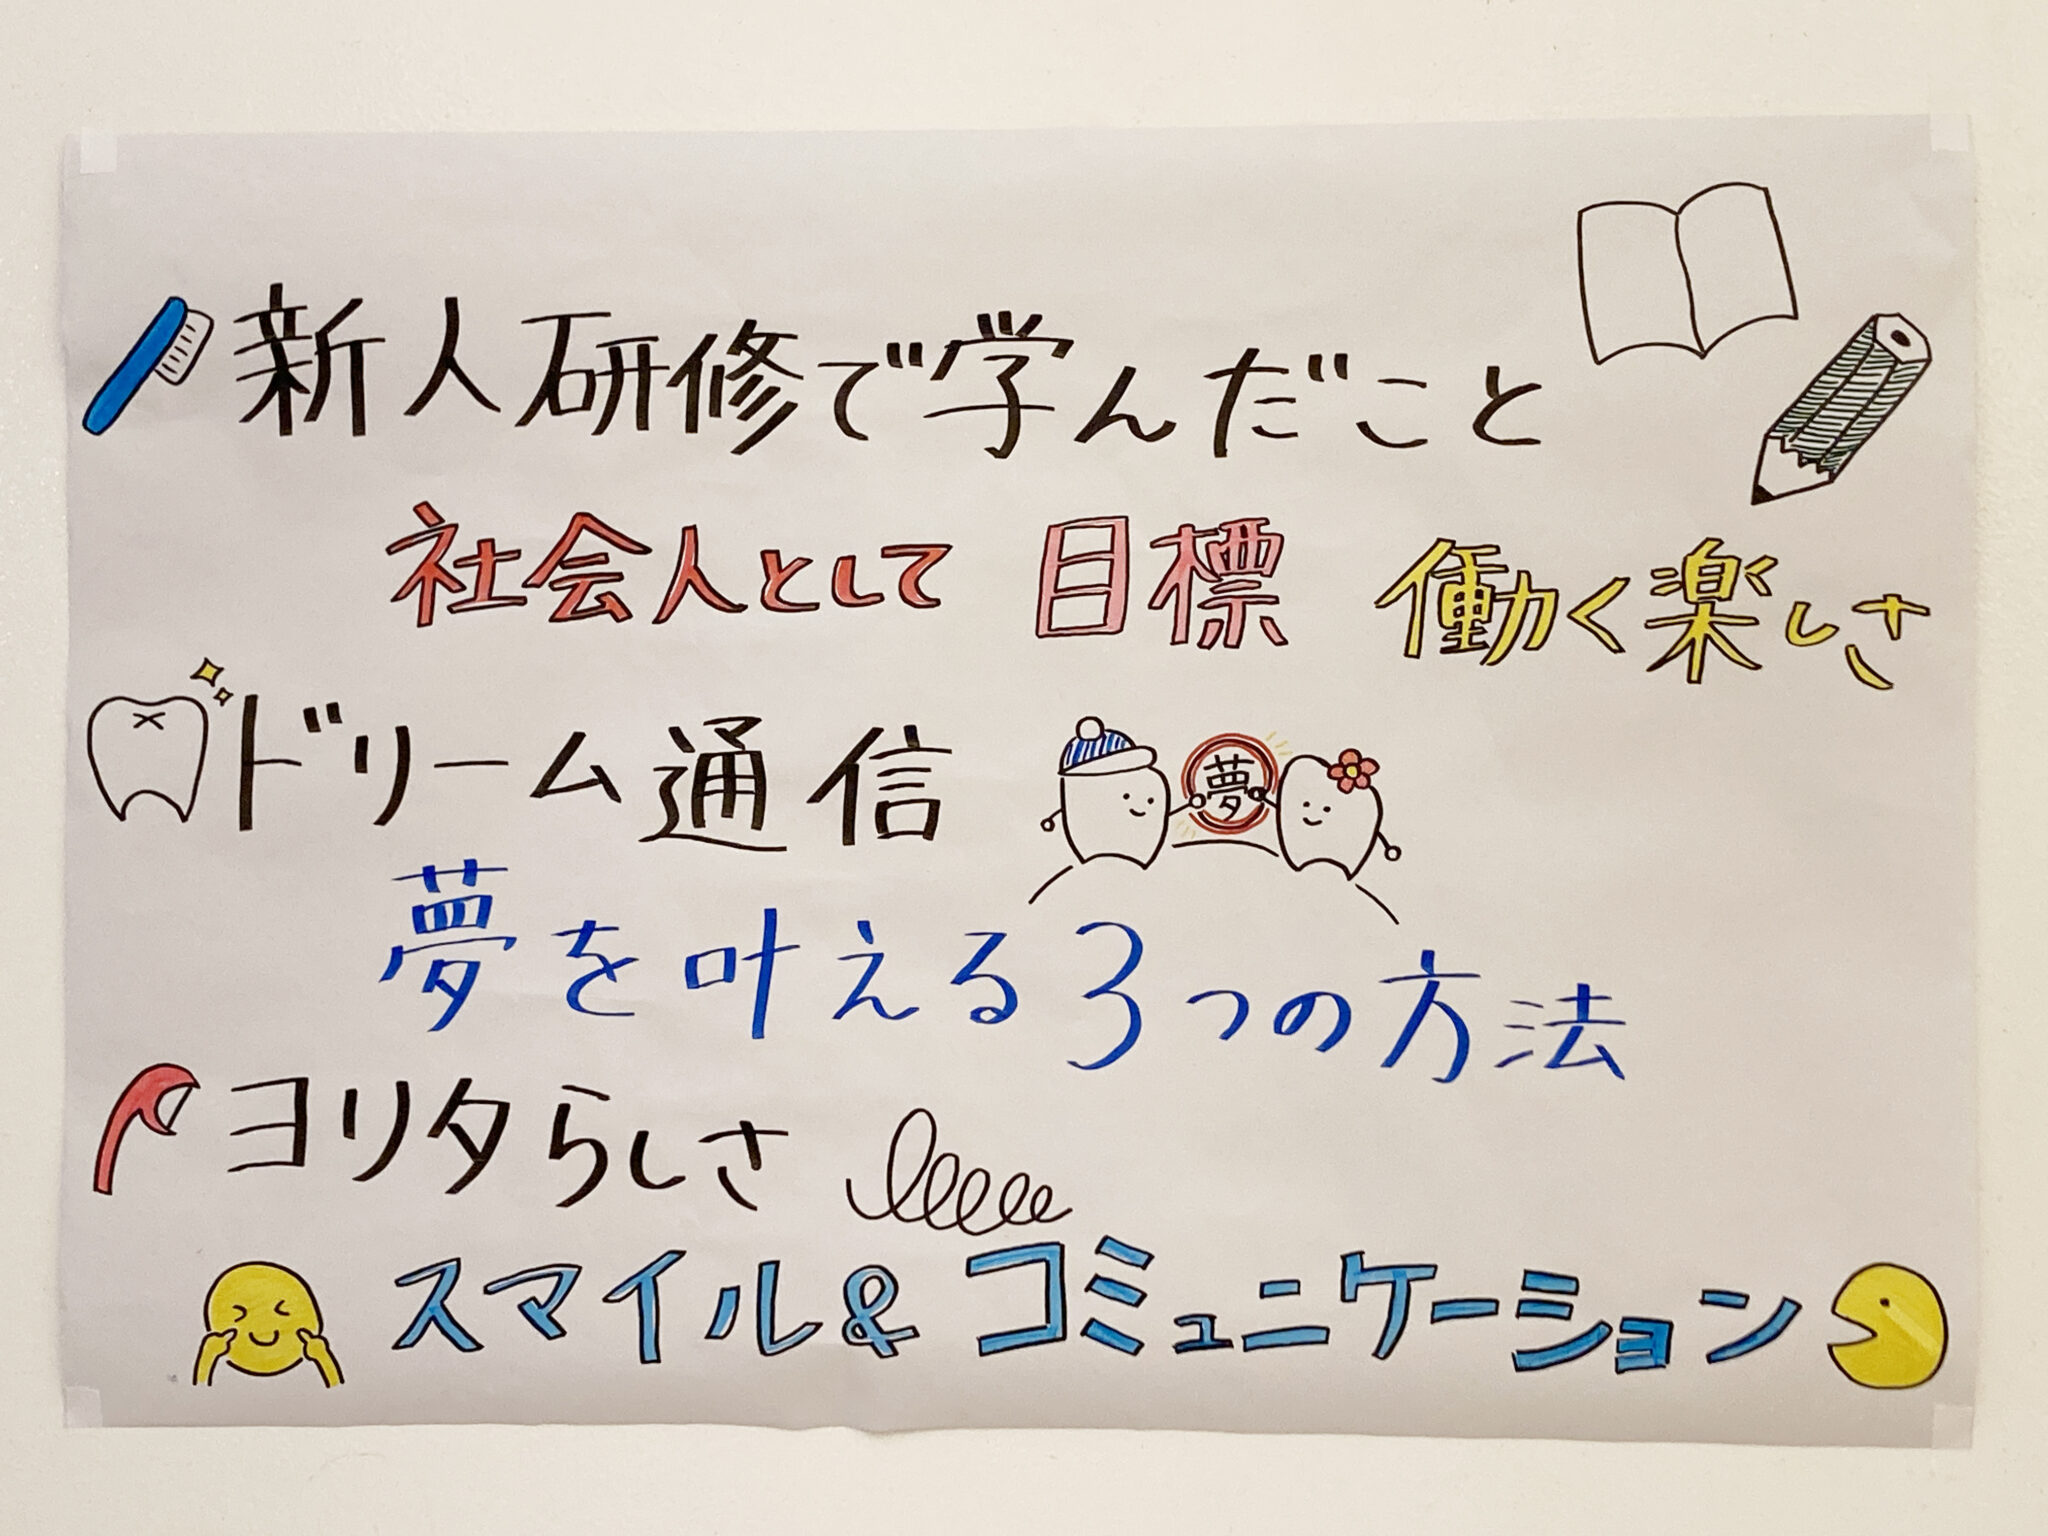 新人研修で学んだこと
社会人として 目標 働く楽しさ
ドリーム通信
夢
夢を叶える3つの方法
ヨリタらしさ
スマイル&コミュニケーション